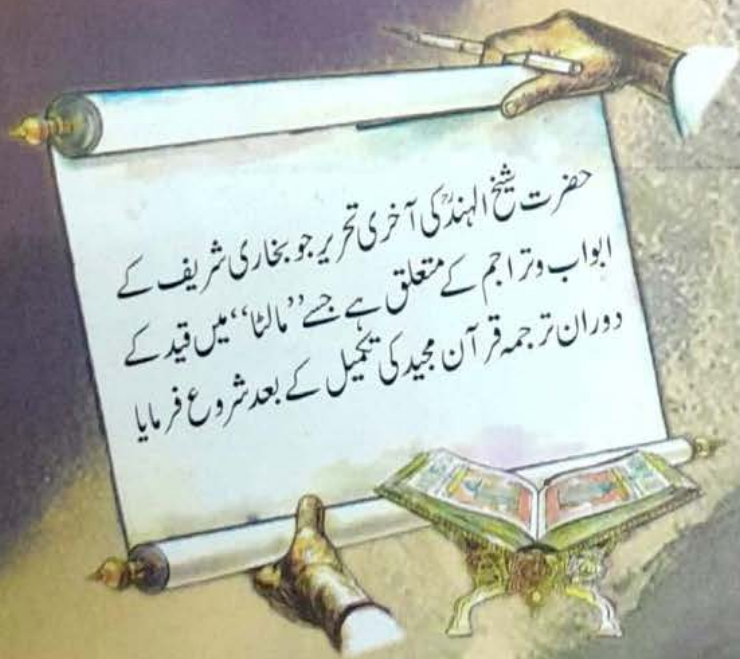 حضرت شیخ الہندؒ کی آخری تحریر جو بخاری شریف کے
ابواب وتراجم کے متعلق ہے جسے ’’مالٹا‘‘ میں قید کے
دوران ترجمہ قرآن مجید کی تکمیل کے بعد شروع فرمایا